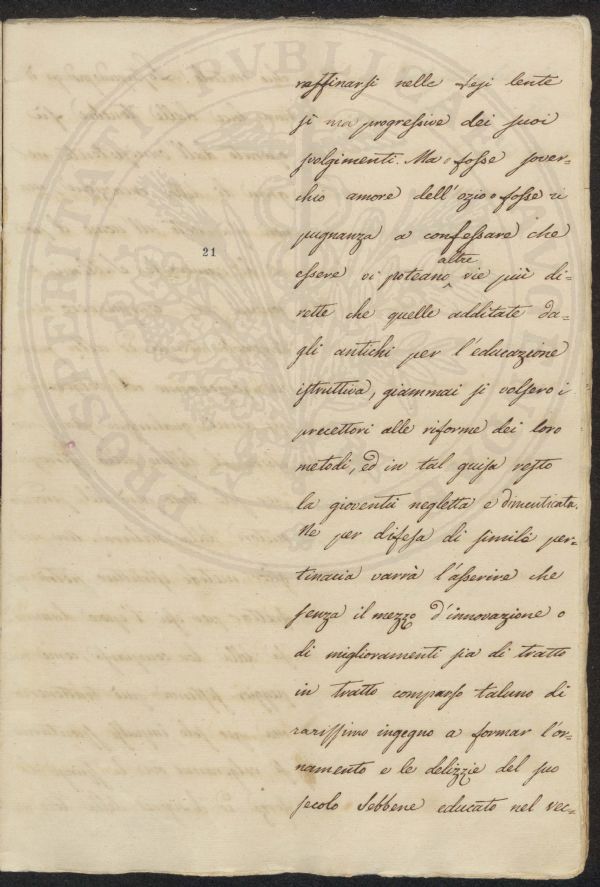 raffinarsi nelle lente
si ma progressive dei suoi
svolgimenti. Ma o fosse sover-
chio amore dell'ozio o fosse ri
pugnanza a confessare che
altre
essere vi poteano vie più di-
rette che quelle additate da-
gli antichi per l'educazione
istruttiva, giammai si volsero i
precettori alle riforme dei loro
metodi, ed in tal guisa restò
la gioventù negletta e dimenticata.
Ne per difesa di simile per-
tinacia varrà l'asserire che
senza il mezzo d'innovazione o
di miglioramenti sia di tratto
in tratto comparso taluno di
rarissimo ingegno a formar l'or-
namento e le delizzie del suo
secolo sebbene educato nel vec-
21
PROSPERITATI PUBLICAE